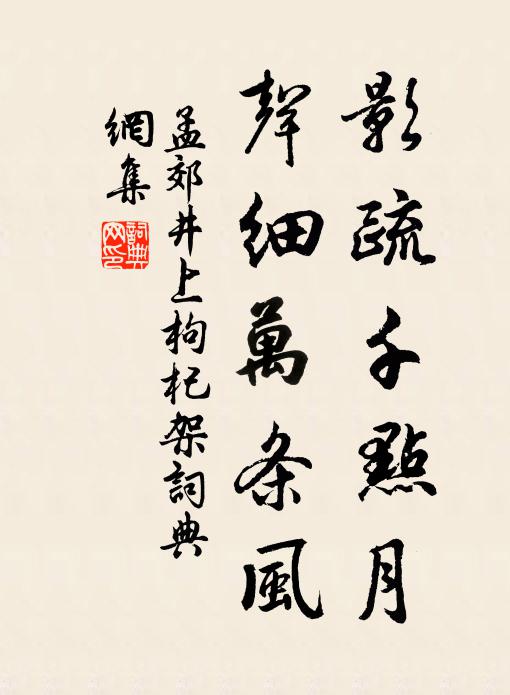 影疏千點月
聲細萬条風
孟郊井上枸杞架詞典
網集
詞典网印